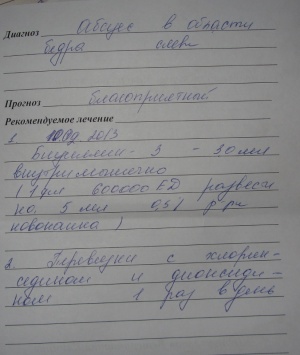 Диагноз Абсцесс в области
бедра слева
Прогноз благоприятный
Рекомендуемое лечение
1. 2013
Бициллин - 3 - 3,0 мл
внутримышечно
( 1 фл 600000 ЕД развести
на 5 мл 0,5% р-ра
новокаина )
2. Перевязки с хлоргек-
сидином и диоксиди-
ном 1 раз в день